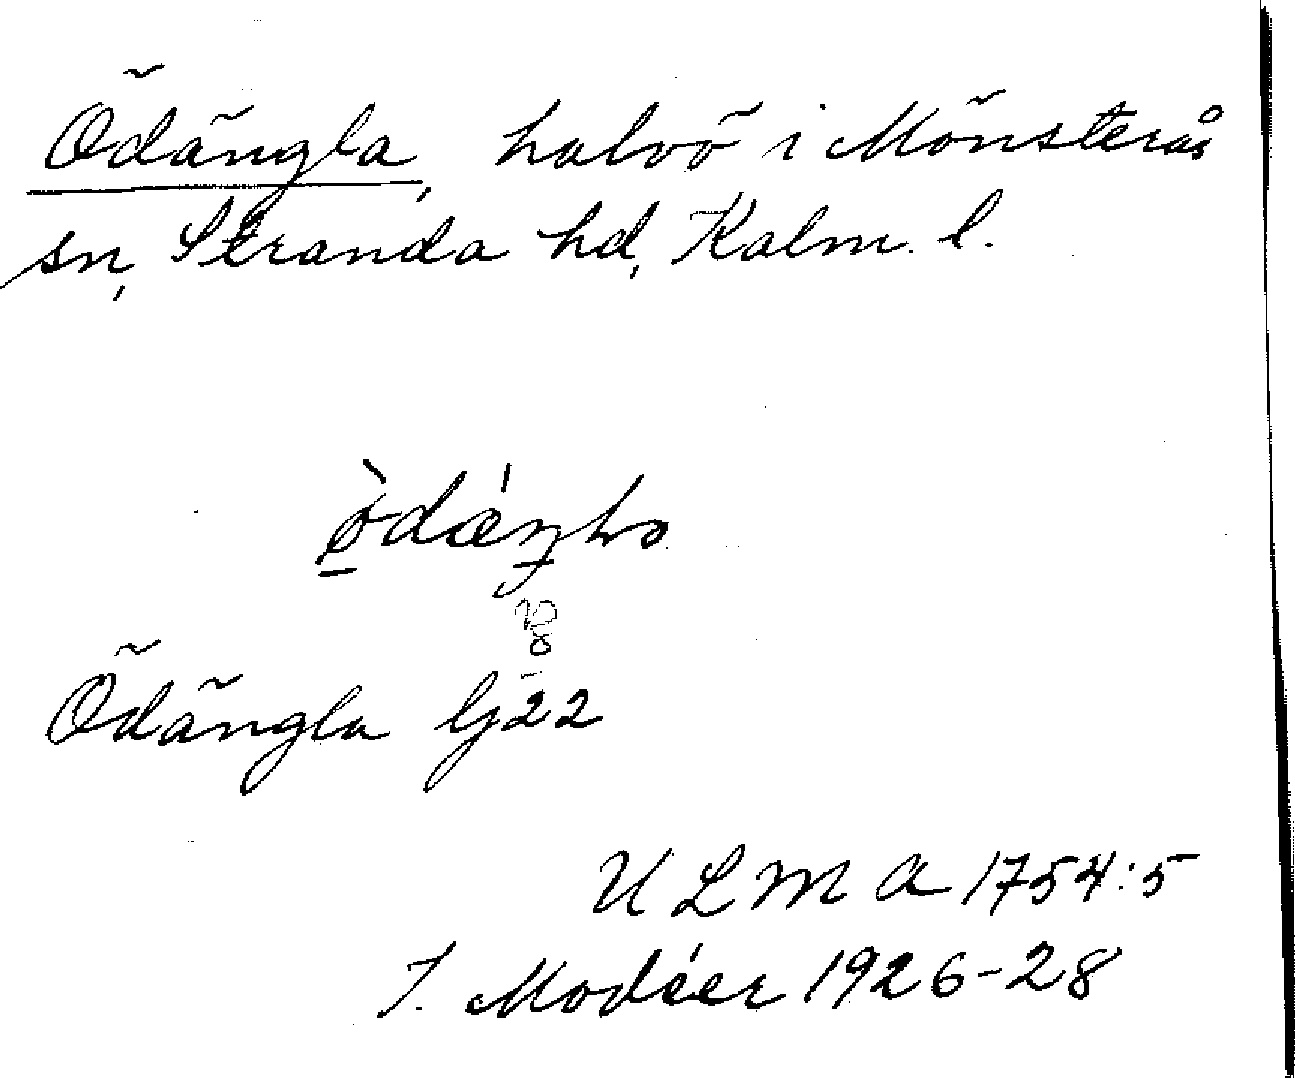 Ödängla, halvö i Mönsterås
sn, Stranda hd, Kalm. l.
Ödängla Gj 22
U L M A 1754:5
I. Modéer 1926-28